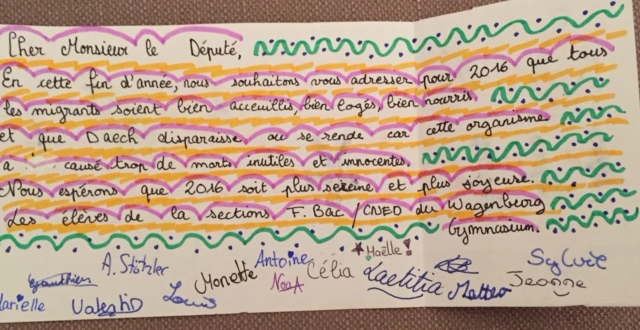 Cher Monsieur le Député,
En cette fin d'année, nous souhaitons vous adresser pour 2016 que tous
les migrants soient bien acceuillis, bien logés, bien nourris
et que Daech disparaisse ou se rende car cette organisme
a causé trop de morts inutiles et innocentes.
Nous espérons que 2016 soit plus sereine et plus joyeuse.
Les élèves de la sections F. Bac/CNED du Wagenburg
Gymnasium.
A. Stötzler Antoine Maëlle! Sylvie
Monette NoeA Célia Laetitia Matteo Jeanne
Marielle Louis